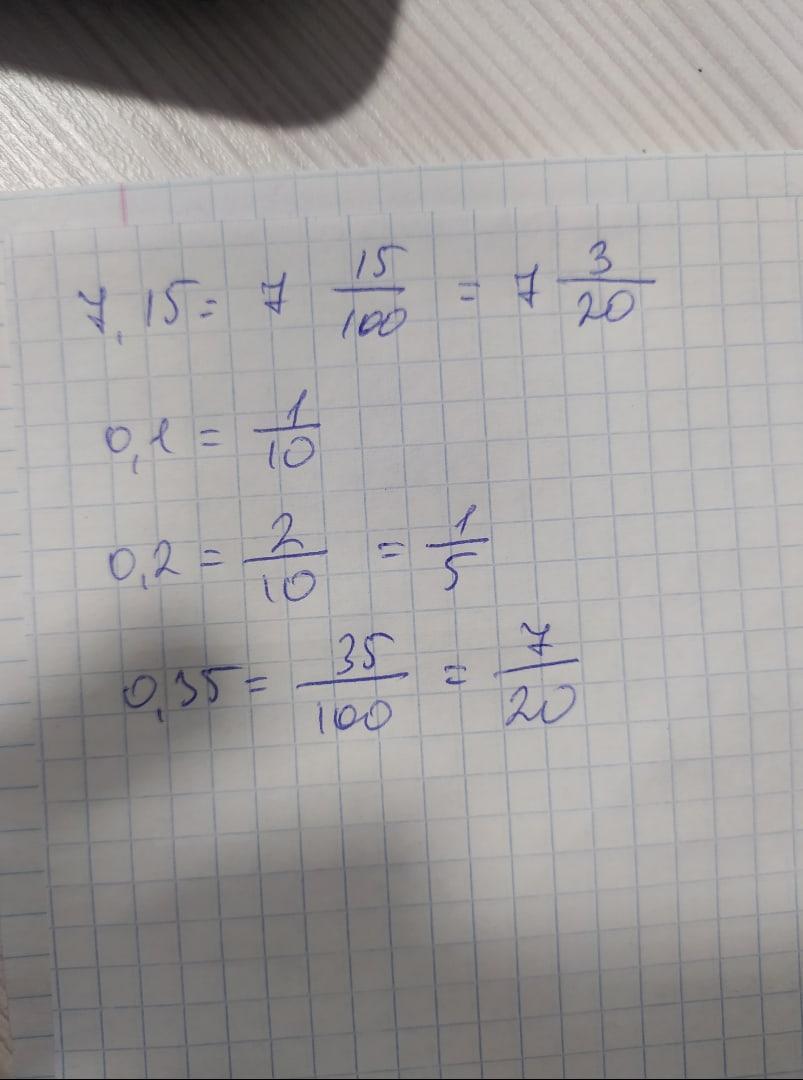 7,15 = 7 15/100 = 7 3/20
0,1 = 1/10
0,2 = 2/10 = 1/5
0,35 = 35/100 = 7/20